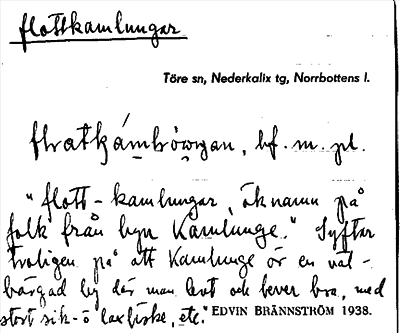 flottkamlungar
Töre sn, Nederkalix tg, Norrbottens l.
bf. m. pl.
"flott-kamlungar, öknamn på
folk från byn Kamlunge." Syftar
troligen på att Kamlunge är en väl-
bärgad by där man levt och lever bra, med
stort sik- o laxfiske, etc." EDVIN BRÄNNSTRÖM 1938.